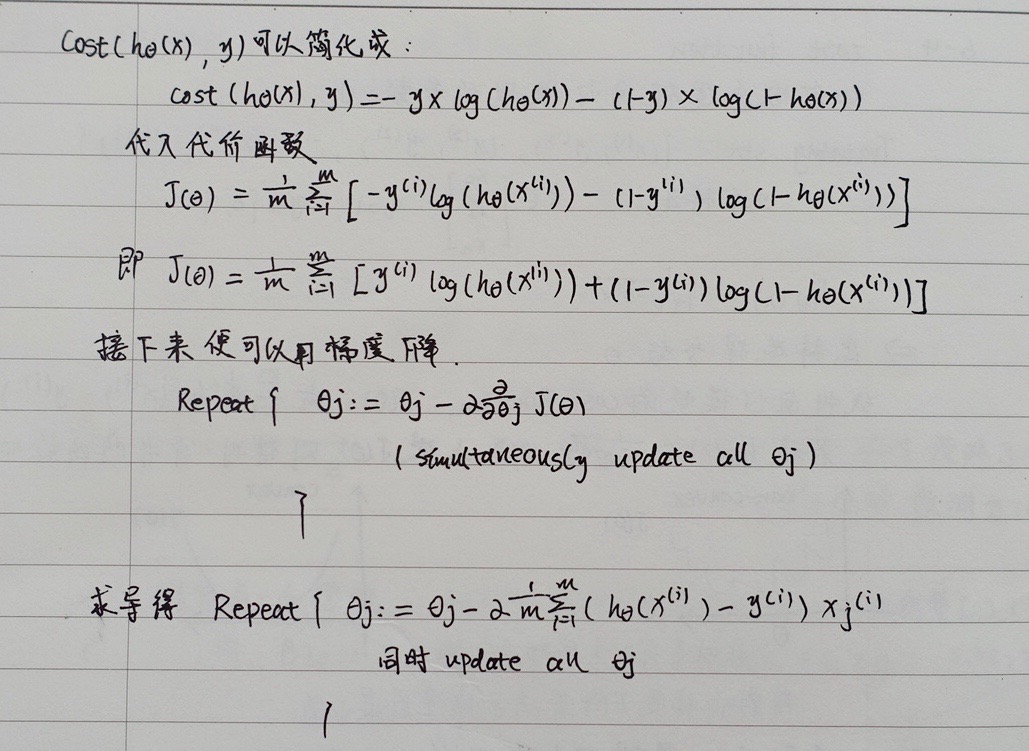 Cost(hθ(x), y)可以简化成:
cost(hθ(x), y) = - y × log(hθ(x)) - (1-y) × log(1-hθ(x))
代入代价函数
J(θ) = 1/m Σ_{i=1}^{m} [-y^(i) log(hθ(x^(i))) - (1-y^(i)) log(1-hθ(x^(i)))]
即 J(θ) = 1/m Σ_{i=1}^{m} [y^(i) log(hθ(x^(i))) + (1-y^(i)) log(1-hθ(x^(i)))]
接下来便可以用梯度下降.
Repeat { θj := θj - α ∂/∂θj J(θ)
(simultaneously update all θj)
}
求导得 Repeat { θj := θj - α 1/m Σ_{i=1}^{m} (hθ(x^(i)) - y^(i)) xj^(i)
同时 update all θj
}